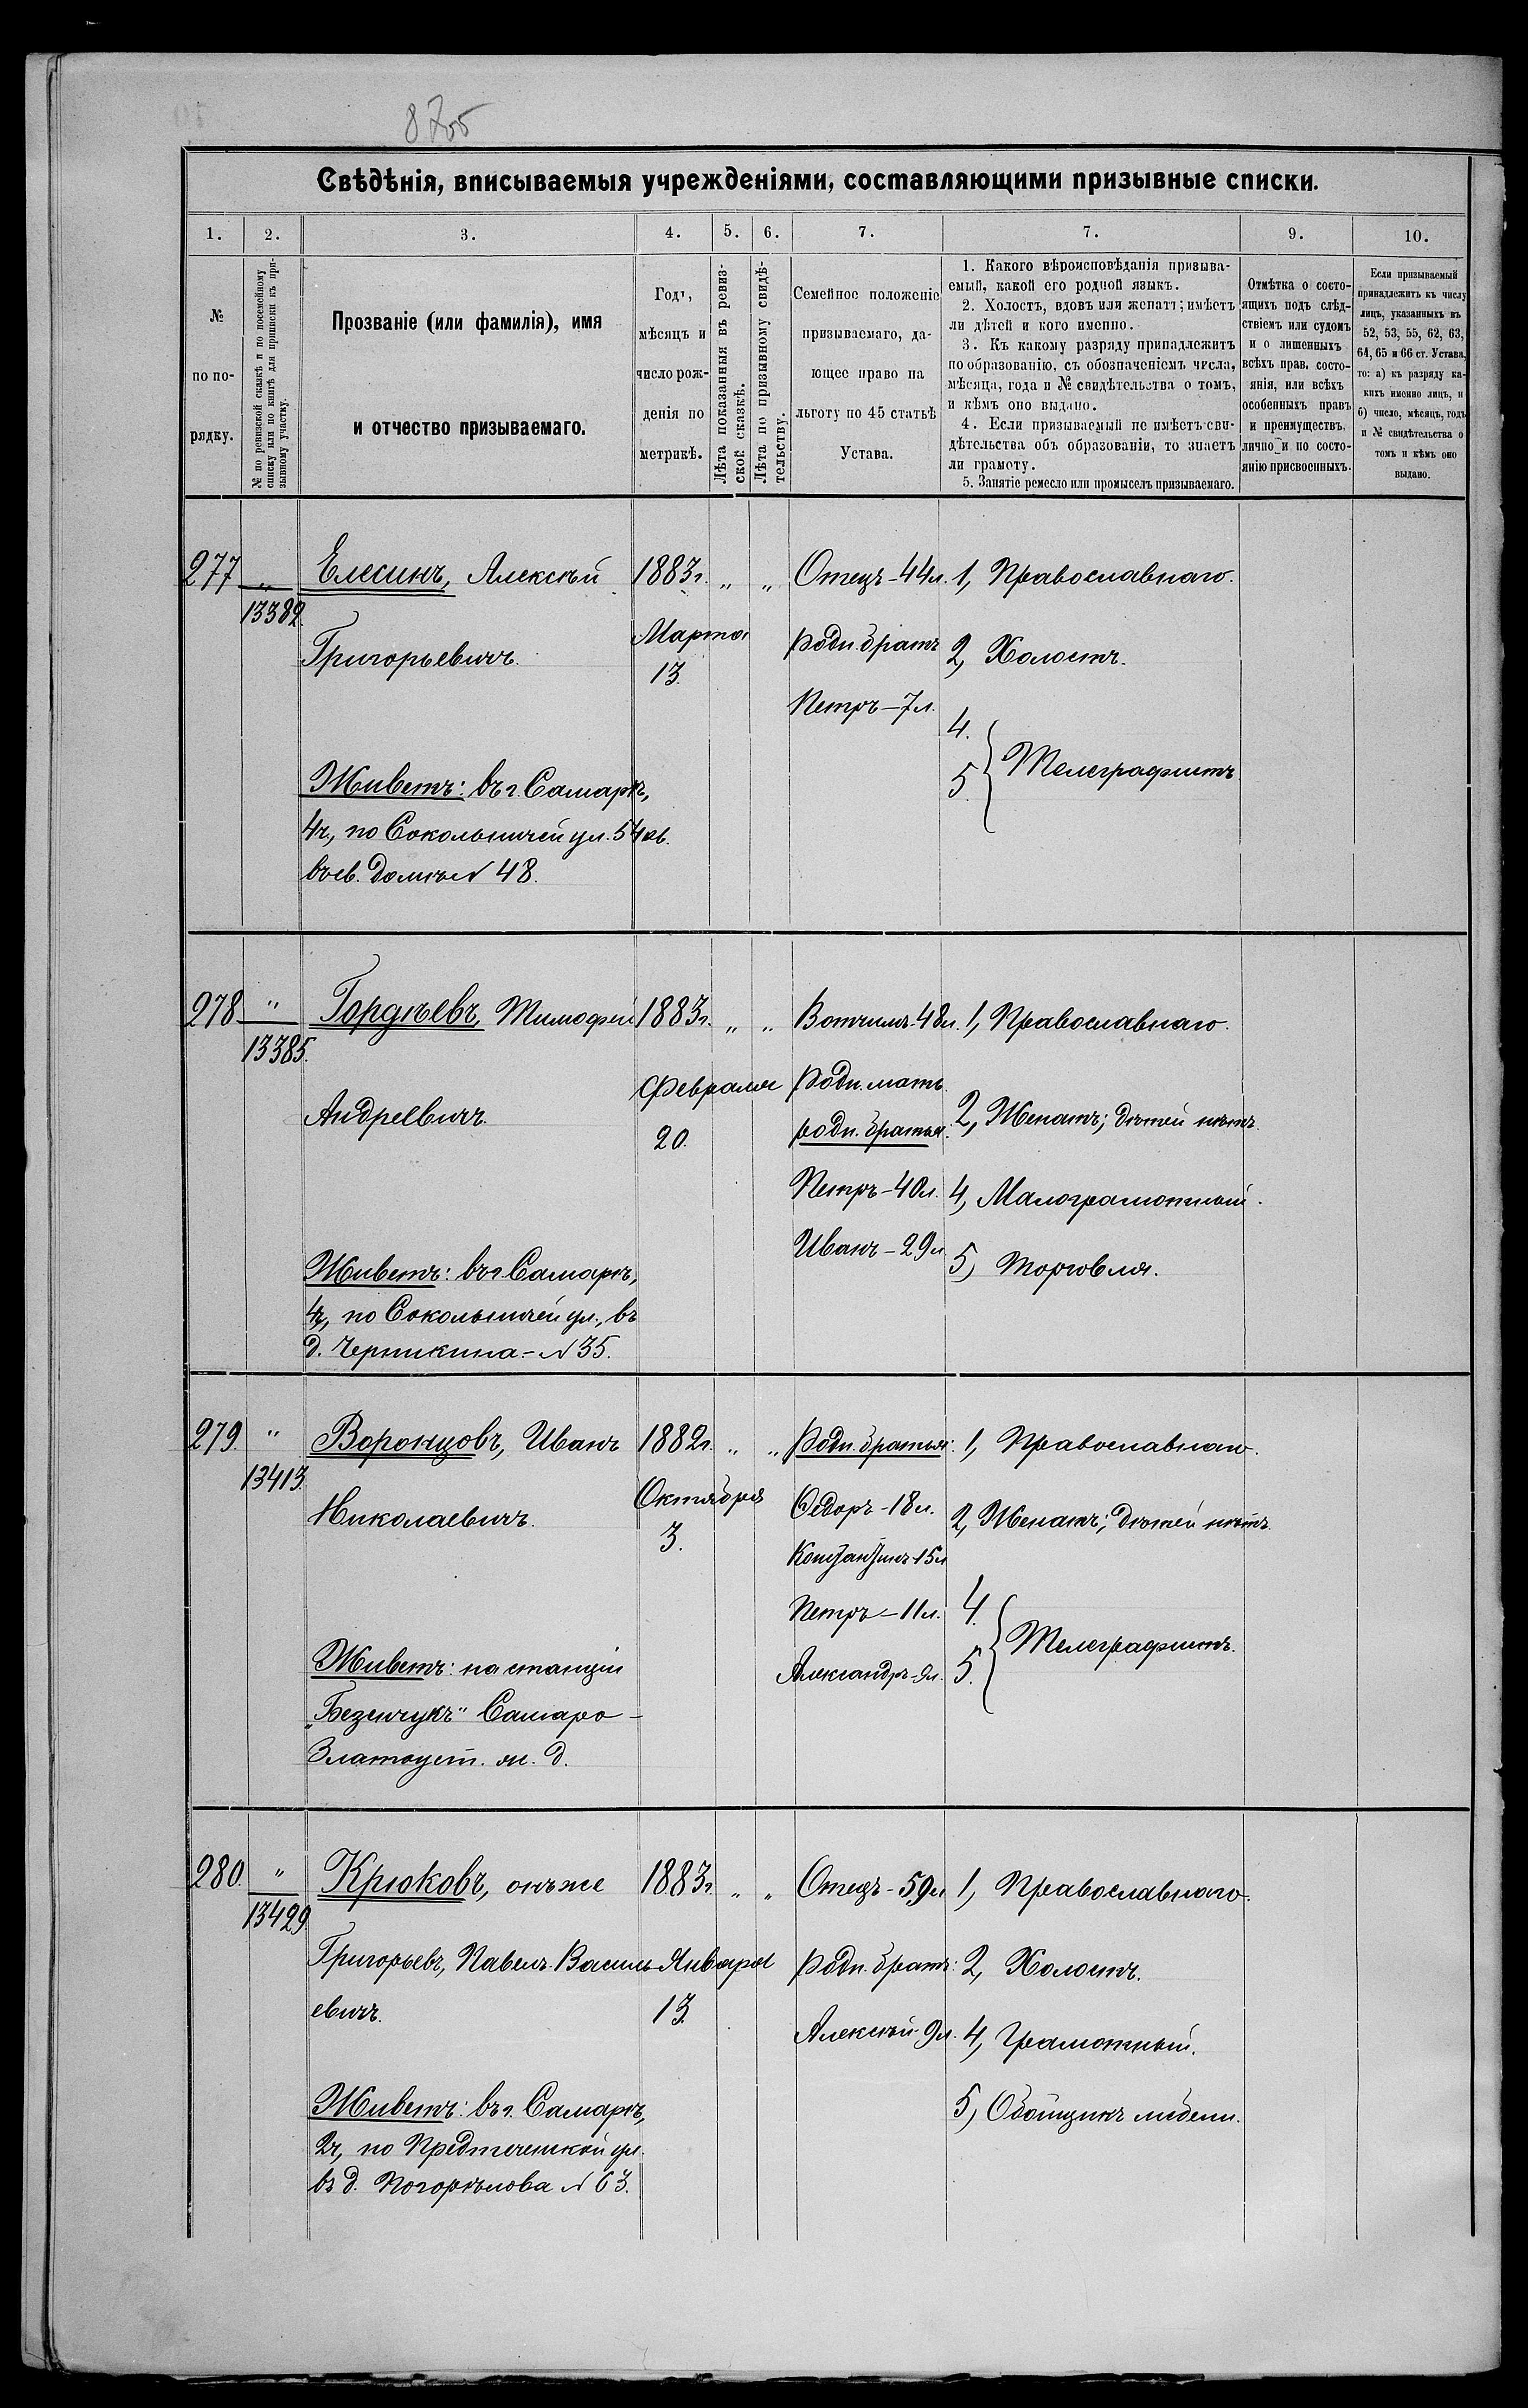 87об
Свѣдѣнія, вписываемыя учрежденіями, составляющими призывные списки.
1. 2. 3. 4. 5. 6. 7. 7. 9. 10.
№
по по-
рядку.
№ по ревизской сказкѣ и по посемейному
списку или по книгѣ для приписки къ при-
зывному участку.
Прозваніе (или фамилія), имя
и отчество призываемаго.
Годъ,
мѣсяцъ и
число рож-
денія по
метрикѣ.
Лѣта показанныя въ ревиз-
ской сказкѣ.
Лѣта по призывному свидѣ-
тельству.
Семейное положеніе
призываемаго, да-
ющее право на
льготу по 45 статьѣ
Устава.
1. Какого вѣроисповѣданія призыва-
емый, какой его родной языкъ.
2. Холостъ, вдовъ или женатъ; имѣетъ
ли дѣтей и кого именно.
3. Къ какому разряду принадлежитъ
по образованію, съ обозначеніемъ числа,
мѣсяца, года и № свидѣтельства о томъ,
и кѣмъ оно выдано.
4. Если призываемый не имѣетъ сви-
дѣтельства объ образованіи, то знаетъ
ли грамоту.
5. Занятіе ремесло или промыселъ призываемаго.
Отмѣтка о состо-
ящихъ подъ слѣд-
ствіемъ или судомъ
и о лишенныхъ
всѣхъ прав. состо-
янія, или всѣхъ
особенныхъ правъ
и преимуществъ,
лично и по состо-
янію присвоенныхъ.
Если призываемый
принадлежитъ къ числу
лицъ, указанныхъ въ
52, 53, 55, 62, 63,
64, 65 и 66 ст. Устава,
то: а) къ разряду ка-
кихъ именно лицъ, и
б) число, мѣсяцъ, годъ
и № свидѣтельства о
томъ и кѣмъ оно
выдано.
277 " Елесинъ, Алексѣй 1883г. " " Отецъ-44л. 1, Православнаго.
13382.
Григорьевичъ.
Марта
13.
родн. братъ
Петръ-7л.
2, Холостъ.
4.
5. } Телеграфистъ
Живетъ: въ г. Самарѣ,
4ч., по Сокольничей ул. 54 кв.
въ св. домѣ № 48.
278 " Гордѣевъ, Тимофей 1883г. " " Вотчимъ-48л. 1, Православнаго.
13385.
Андреевичъ.
Февраля
20.
родн. мать.
родн. братья:
Петръ-40л.
Иванъ-29л.
2, Женатъ; дѣтей нѣтъ.
4, Малограмотный.
5, Торговля.
Живетъ: въ г. Самарѣ,
4ч, по Сокольничей ул., въ
д. Черникина-№35.
279. " Воронцовъ, Иванъ 1882г. " " Родн. братья: 1, Православнаго.
13413.
Николаевичъ.
Октября
3.
Ѳедоръ-18л.
Константинъ-15л
Петръ-11л.
Александръ-9л.
2, Женатъ; дѣтей нѣтъ.
4.
5. } Телеграфистъ.
Живетъ: на станціи
„Безенчукъ" Самаро-
Златоуст. ж. д.
280. " Крюковъ, онъ же 1883г. " " Отецъ-59л 1, Православнаго.
13429
Григорьевъ, Павелъ Василь-
евичъ.
Января
13.
родн. братъ:
Алексѣй-9л.
2, Холостъ.
4, Грамотный.
5, Обойщикъ мебели.
Живетъ: въ г. Самарѣ,
2ч, по Предтеченской ул.
въ д. Погорѣлова № 63.